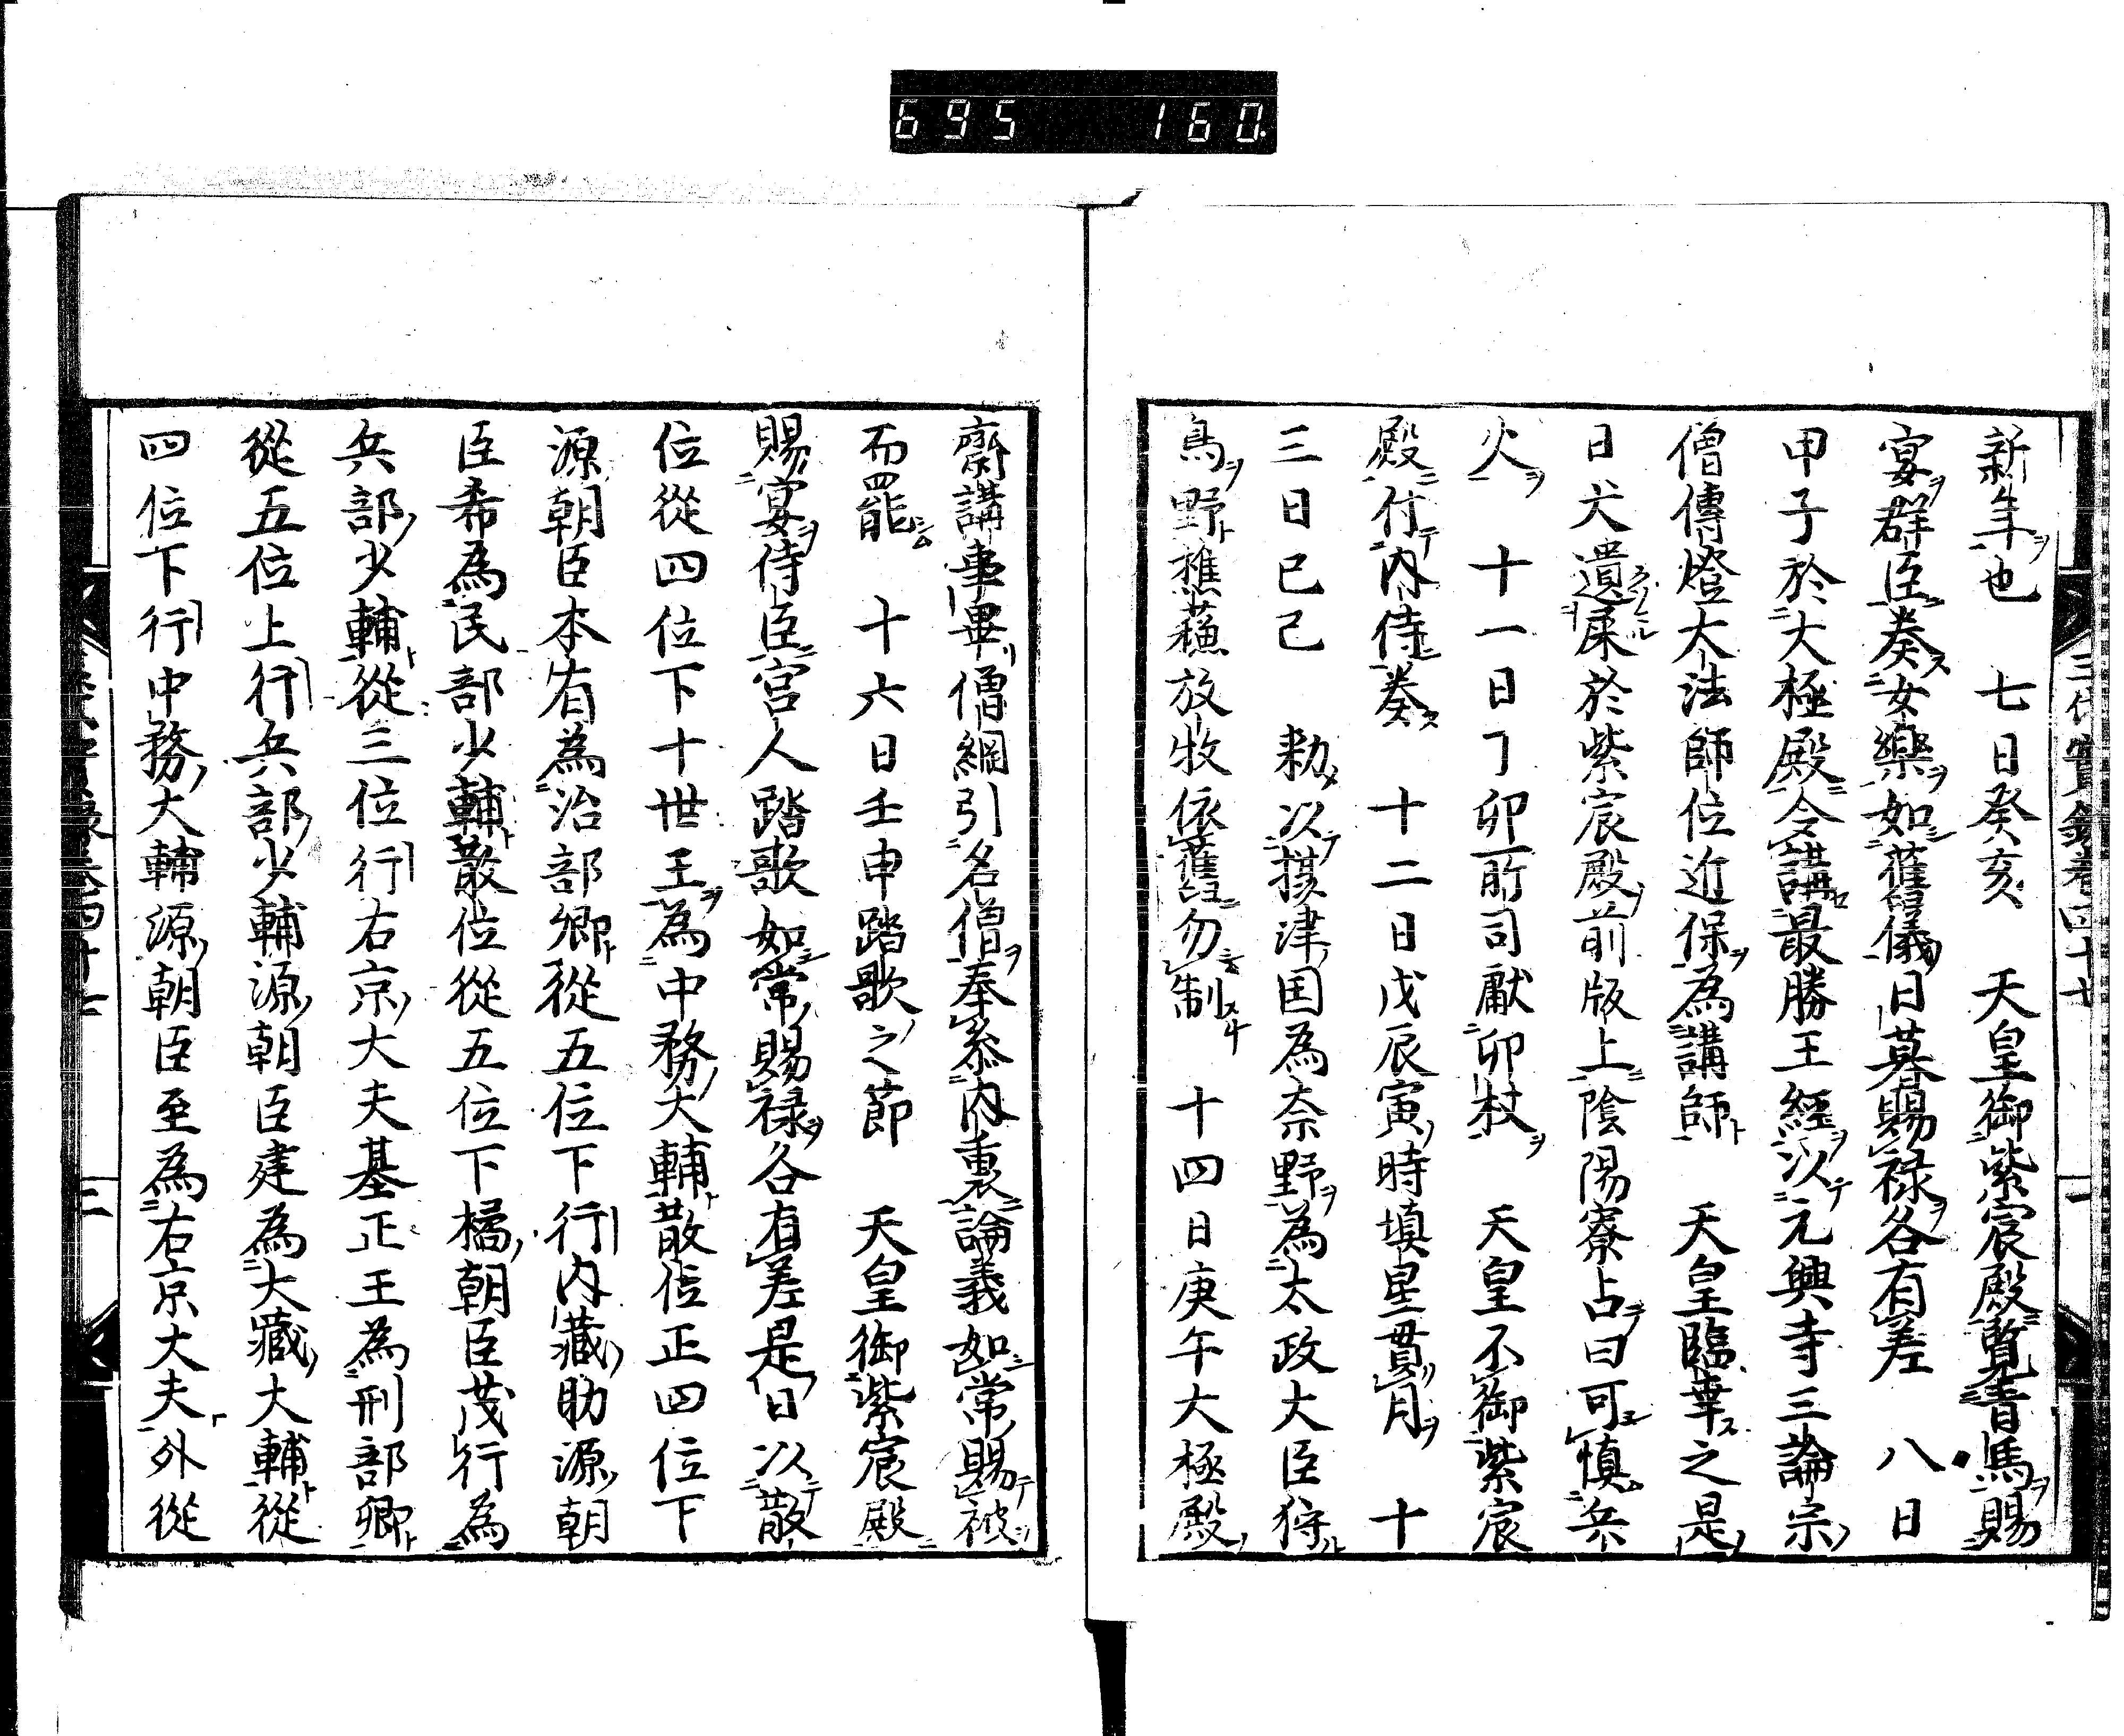 695 160
三代實録卷四十七
新年也　七日癸亥　天皇御紫宸殿覧青馬賜
宴群臣奏女樂如舊儀日暮賜禄各有差　八日
甲子於大極殿令講最勝王經以元興寺三論宗
僧傳燈大法師位近保為講師　天皇臨幸之是
日犬遺𡱁於紫宸殿前版上陰陽寮占曰可慎兵
火　十一日丁卯所司獻卯杖　天皇不御紫宸
殿付内侍奏　十二日戊辰寅時填星貫月　十
三日己巳　勅以攝津国為奈野為太政大臣狩
鳥野樵蘓放牧依舊勿制　十四日庚午大極殿
齋講事畢僧綱引名僧奉参内裏論義如常賜被
而罷　十六日壬申踏歌之節　天皇御紫宸殿
賜宴侍臣宮人踏歌如常賜禄各有差是日以散
位從四位下十世王為中務大輔散位正四位下
源朝臣本有為治部卿從五位下行内藏助源朝
臣希為民部少輔散位從五位下橘朝臣茂行為
兵部少輔從三位行右京大夫基正王為刑部卿
從五位上行兵部少輔源朝臣建為大藏大輔從
四位下行中務大輔源朝臣至為右京大夫外從